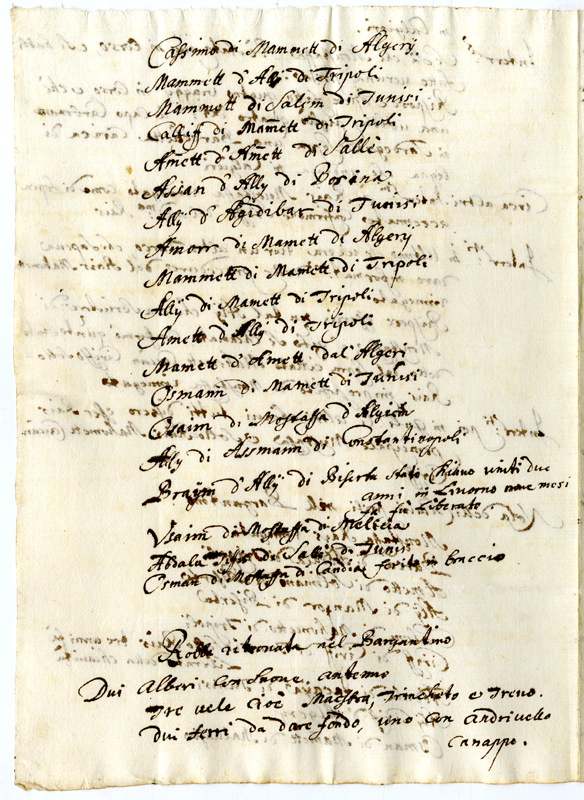 Cassimo di Mammett di Algerÿ
Mammett d'Ally di Tripoli
Mammett di Salim di Tunisi
Calliff di Mamett di Tripoli
Amett d'Amett di Sallè
Assan d'Ally di Bosina
Ally d'Agidibar di Tunisi
Amorr di Mamett di Algerÿ
Mammett di Mamett di Tripoli
Allÿ di Mamett di Tripoli
Amett d'Ally di Tripoli
Mamett d'Amett dal'Algeri
Osmann di Mamett di Tunisi
di Mostaffa d'
Ally di Assmann di Constantinopoli
Braÿm d'Allÿ di Biserta stato Chiavo vinti due
anni in Livorno nove mesi
fà fu Liberato
Usaim di Mostaffa di
Abdala di Salì di Tunisi
Osman di Mostaffa di Candia ferito in braccio
Robbe ritrovata nel Bargantino
Dui Alberi con suone antenne
Tre vele cioè Maestra, Trincheto e Trevo.
Dui ferri da dare fondo, uno con Andrivello
canappo.